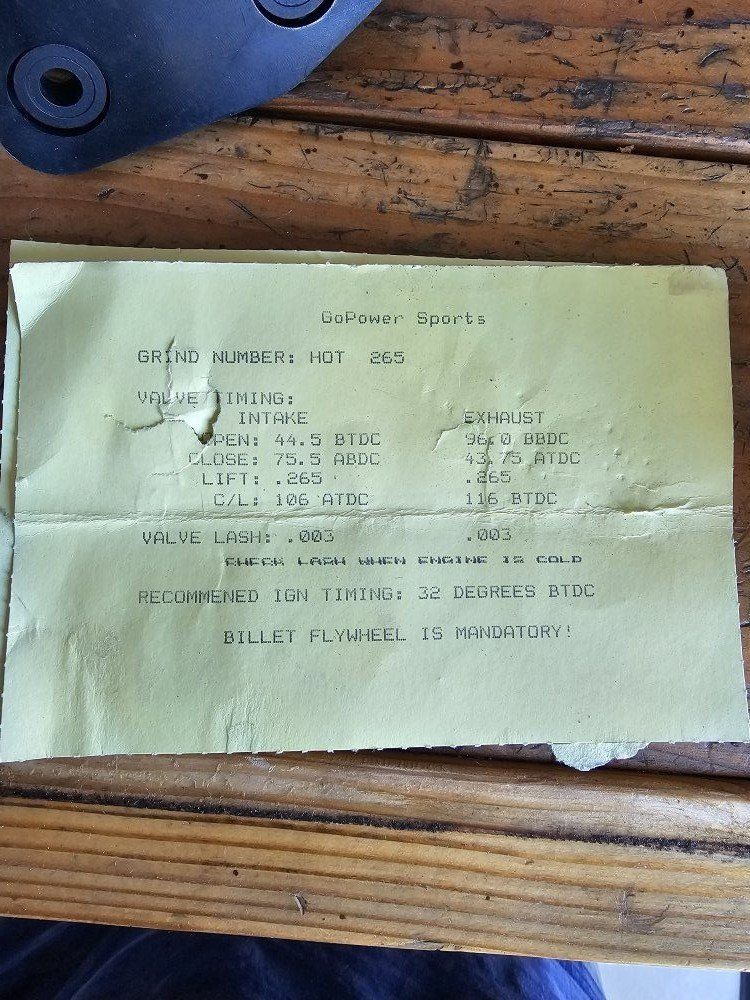 GoPower Sports
GRIND NUMBER: HOT 265
VALVE TIMING:
INTAKE EXHAUST
OPEN: 44.5 BTDC 96.0 BBDC
CLOSE: 75.5 ABDC 43.75 ATDC
LIFT: .265 .265
C/L: 106 ATDC 116 BTDC
VALVE LASH: .003 .003
CHECK LASH WHEN ENGINE IS COLD
RECOMMENED IGN TIMING: 32 DEGREES BTDC
BILLET FLYWHEEL IS MANDATORY!